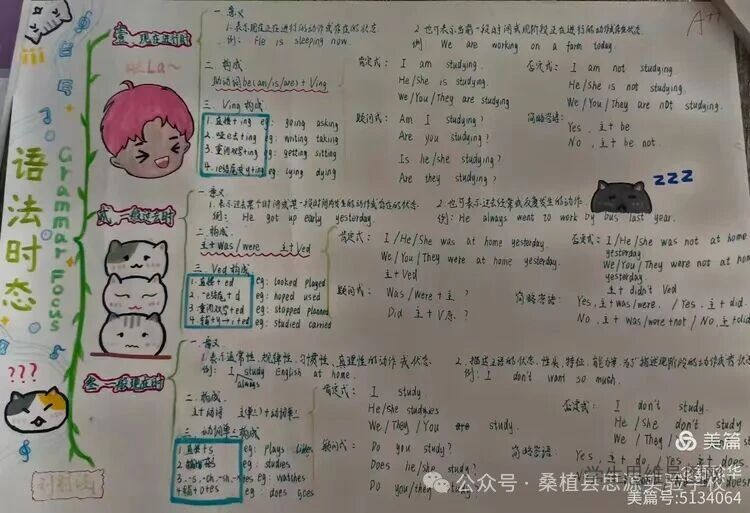 语法时态
Grammar Focus
???
A++
壹. 现在进行时
LaLa~
一. 意义
1. 表示现在正在进行的动作或存在的状态
例: He is sleeping now.
2. 也可表示当前一段时间或现阶段正在进行的动作或存在状态
例: We are working on a farm today.
二. 构成
助动词be(am/is/are)+Ving
肯定式: I am studying.
He/She is studying.
We/You/They are studying
否定式: I am not studying.
He/She is not studying.
We/You/They are not studying.
疑问式: Am I studying?
Are you studying?
Is he/she studying?
Are they studying?
简略答语:
Yes, 主+be
No, 主+be not.
三. Ving构成
1. 直接+ing eg: going asking
2. 哑e去+ing eg: writing taking
3. 重闭双写+ing eg: getting sitting
4. ie结尾变y+ing eg: lying dying
zzz
贰. 一般过去时
一. 意义
1. 表示过去某个时间或某一段时间内发生的动作或存在的状态
例: He got up early yesterday.
2. 也可表示过去经常或反复发生的动作.
例: He always went to work by bus last year.
二. 构成
主+was/were 主+Ved
肯定式: I/He/She was at home yesterday.
We/You/They were at home yesterday.
主+Ved
否定式: I/He/She was not at home
yesterday.
We/You/They were not at home
yesterday.
主+didn't Ved
疑问式: Was/Were+主?
Did 主+V原?
简略答语: Yes, 主+was/were. / Yes, 主+did.
No, 主+was/were+not / No, 主+did
三. Ved构成
1. 直接+ed eg: looked played
2. -e结尾+d eg: hoped used
3. 重闭双写+ed eg: stopped planned
4. 辅+y→i+ed eg: studied carried
叁. 一般现在时
一. 意义
1. 表示通常性、规律性、习惯性、真理性的动作或状态
例: I study English at home.
always
2. 描述主语的状态、性头、特征、能力等, 为了描述现阶段的动作或者状态
例: I don't want so much.
二. 构成
主+动词 主(单三)+动词单三
肯定式: I study
He/she studyies
We/They/You study.
否定式: I don't study.
He/She don't study
We/They/You
疑问式: Do you study?
Does he/she study?
Do you/they study?
简略答语: Yes, 主+do
三. 动词单三构成
1. 直接+s eg: plays likes
eg: studies
3. -s, -ch, -sh, eg: watches
4. 辅+o+es eg: does goes
美篇
学生思维导图
公众号·桑植县思源实验学校
美篇号:5134064